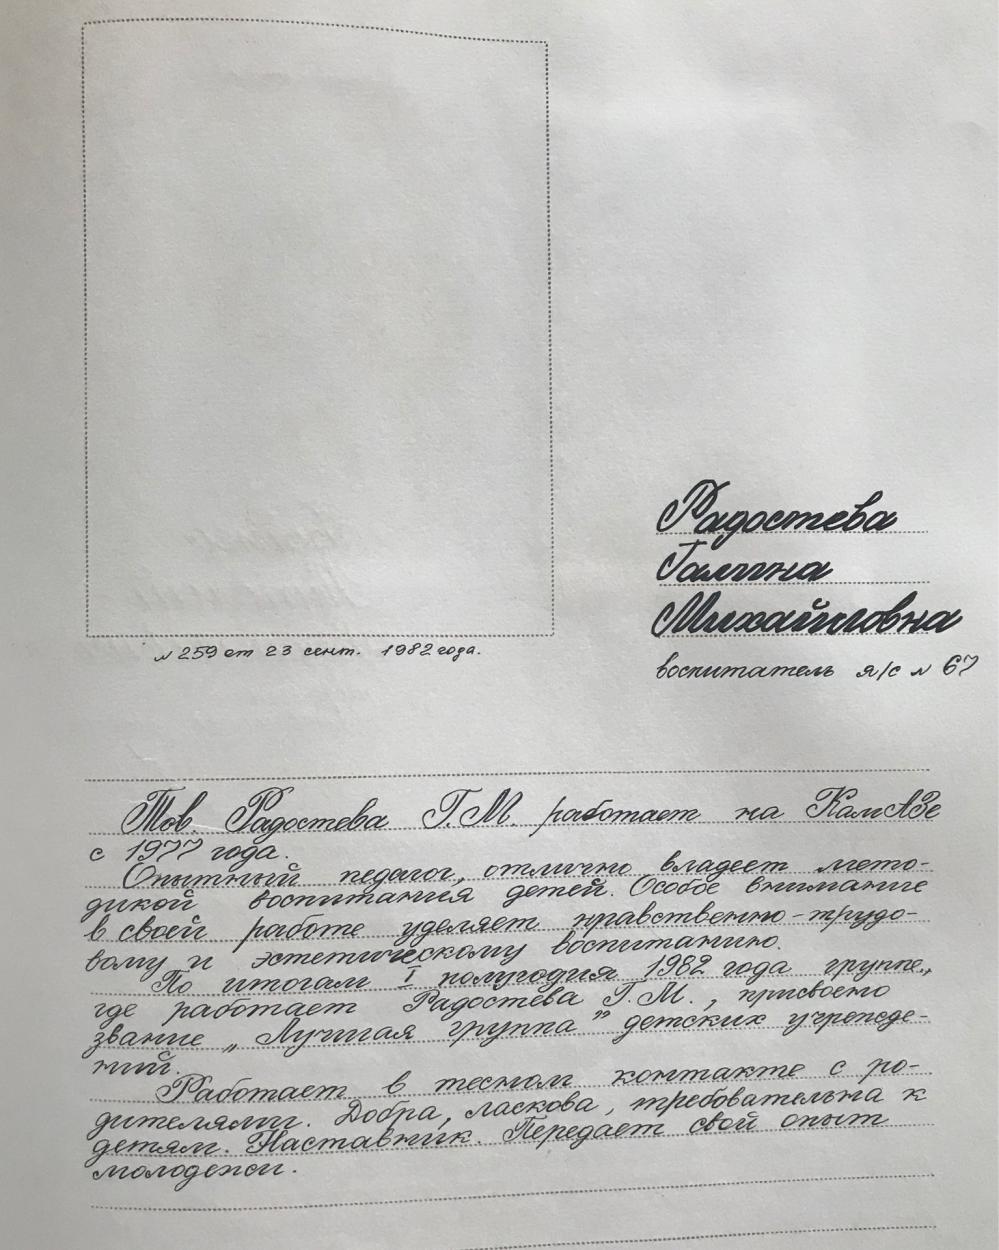 Радостева
Галина
Михайловна
№ 259 от 23 сент. 1982 года.
воспитатель я/с № 67
Тов. Радостева Г.М. работает на КамАЗе
с 1977 года.
Опытный педагог, отлично владеет мето-
дикой воспитания детей. Особое внимание
в своей работе уделяет нравственно-трудо-
вому и эстетическому воспитанию.
По итогам I полугодия 1982 года группе,
где работает Радостева Г.М., присвоено
звание „Лучшая группа” детских учрежде-
ний.
Работает в тесном контакте с ро-
дителями. Добра, ласкова, требовательна к
детям. Наставник. Передает свой опыт
молодежи.